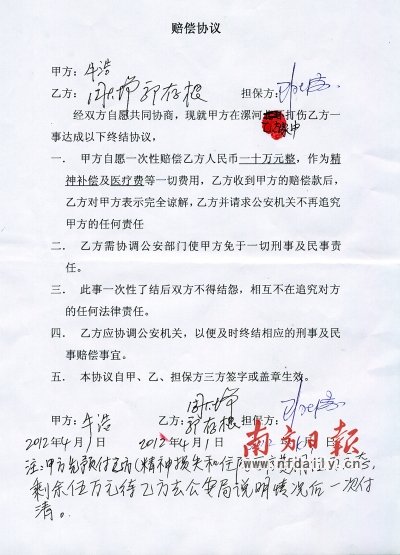 赔偿协议
甲方：牛浩
乙方：郭存根 担保方：
经双方自愿共同协商，现就甲方在漯河打伤乙方一
家中
事达成以下终结协议，
一． 甲方自愿一次性赔偿乙方人民币一十万元整，作为精
神补偿及医疗费等一切费用，乙方收到甲方的赔偿款后，
乙方对甲方表示完全谅解，乙方并请求公安机关不再追究
甲方的任何责任
二． 乙方需协调公安部门使甲方免于一切刑事及民事责
任。
三． 此事一次性了结后双方不得结怨，相互不在追究对方
的任何法律责任。
四． 乙方应协调公安机关，以便及时终结相应的刑事及民
事赔偿事宜。
五． 本协议自甲、乙、担保方三方签字或盖章生效。
甲方：牛浩 乙方：郭存根 担保方：
2012年4月1日 2012年4月1日
南方日报
www.nfdaily.cn
注：甲方先预付乙方（精神损失和住院
剩余伍万元待乙方去公安局说明情况后一次付
清。